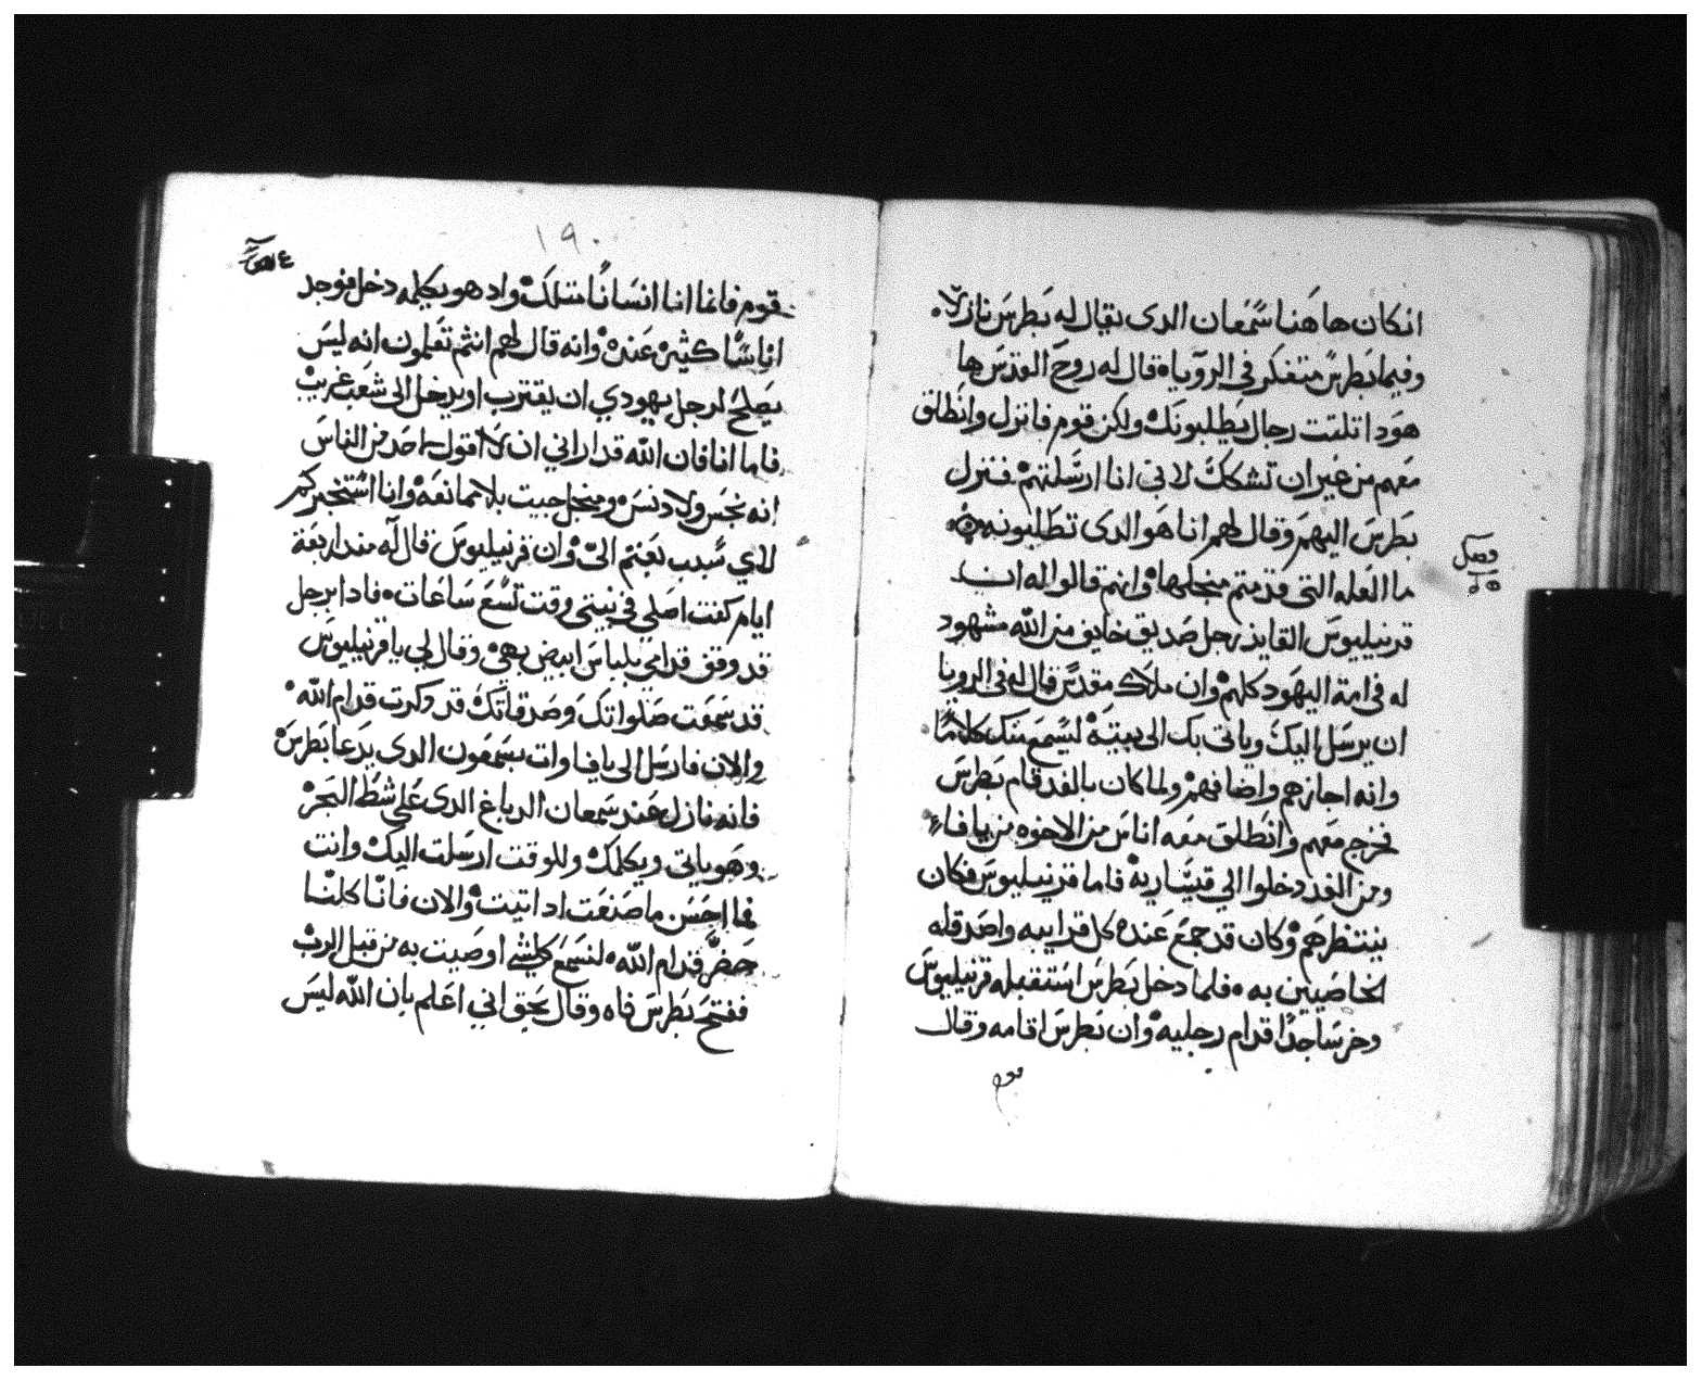 انكان هاهنا سمعان الدى يقال له بطرس نازلا
وفيما بطرس متفكر فى الرويا قال له روح القدس ها
هودا تلتت رجال يطلبونك ولكن قوم فانزل وانطلق
معهم من غير ان تشكك لانى انا ارسلتهم فنزل
بطرس اليهم وقال لهم انا هو الدى تطلبونه
ما العله التى قدمتم منجلها وانهم قالوا له ان
قرنيليوس القايد رجل صديق خايف من الله مشهود
له فى امة اليهود كلهم وان ملاك مقدس قال له فى الرويا
ان يرسل اليك وياتى بك الى بيته ليسمع منك كلامًا
وانه اجازهم واضافهم ولما كان بالغد قام بطرس
فخرج معهم وانطلق معه اناس من الاخوه من يافا
ومن الغد دخلوا الي قيسارية فاما قرنيليوس فكان
ينتظرهم وكان قد جمع عنده كل قرايبه واصدقاه
الخاصيين به فلما دخل بطرس استقبله قرنيليوس
وخر ساجدًا قدام رجليه وان بطرس اقامه وقال
قوم
فصل
١٩٠
قوم فانما انا انسانًا متلك واد هو يكلمه دخل فوجد
اناسًا كثيره عنده وانه قال لهم انتم تعلمون انه ليس
يصلح لرجل يهودي ان يقترب او يدخل الى شعب غريب
فاما انا فان الله قد اراني ان لا اقول احد من الناس
انه نجس ولا دنس ومنجل جيت بلا ممانعه وانا استخبركم
لاي سبب بعتم الىّ وان قرنيليوس قال له مند اربعة
ايام كنت اصلى فى بيتى وقت تسع ساعات فادا برجل
قد وقف قدامي بلباس ابيض بهي وقال لي يا قرنيليوس
قد سمعت صلواتك وصدقاتك قد دكرت قدام الله
والان فارسل الى يافا وات بسمعون الدى يدعا بطرس
فانه نازل عند سمعان الدباغ الدى على شط البحر
وهو ياتى ويكلمك وللوقت ارسلت اليك وانت
فما احسن ما صنعت اد اتيت والان فانا كلنا
حضر قدام الله لنسمع كلشى اوصيت به من قبل الرب
ففتح بطرس فاه وقال بحق اني اعلم بان الله ليس